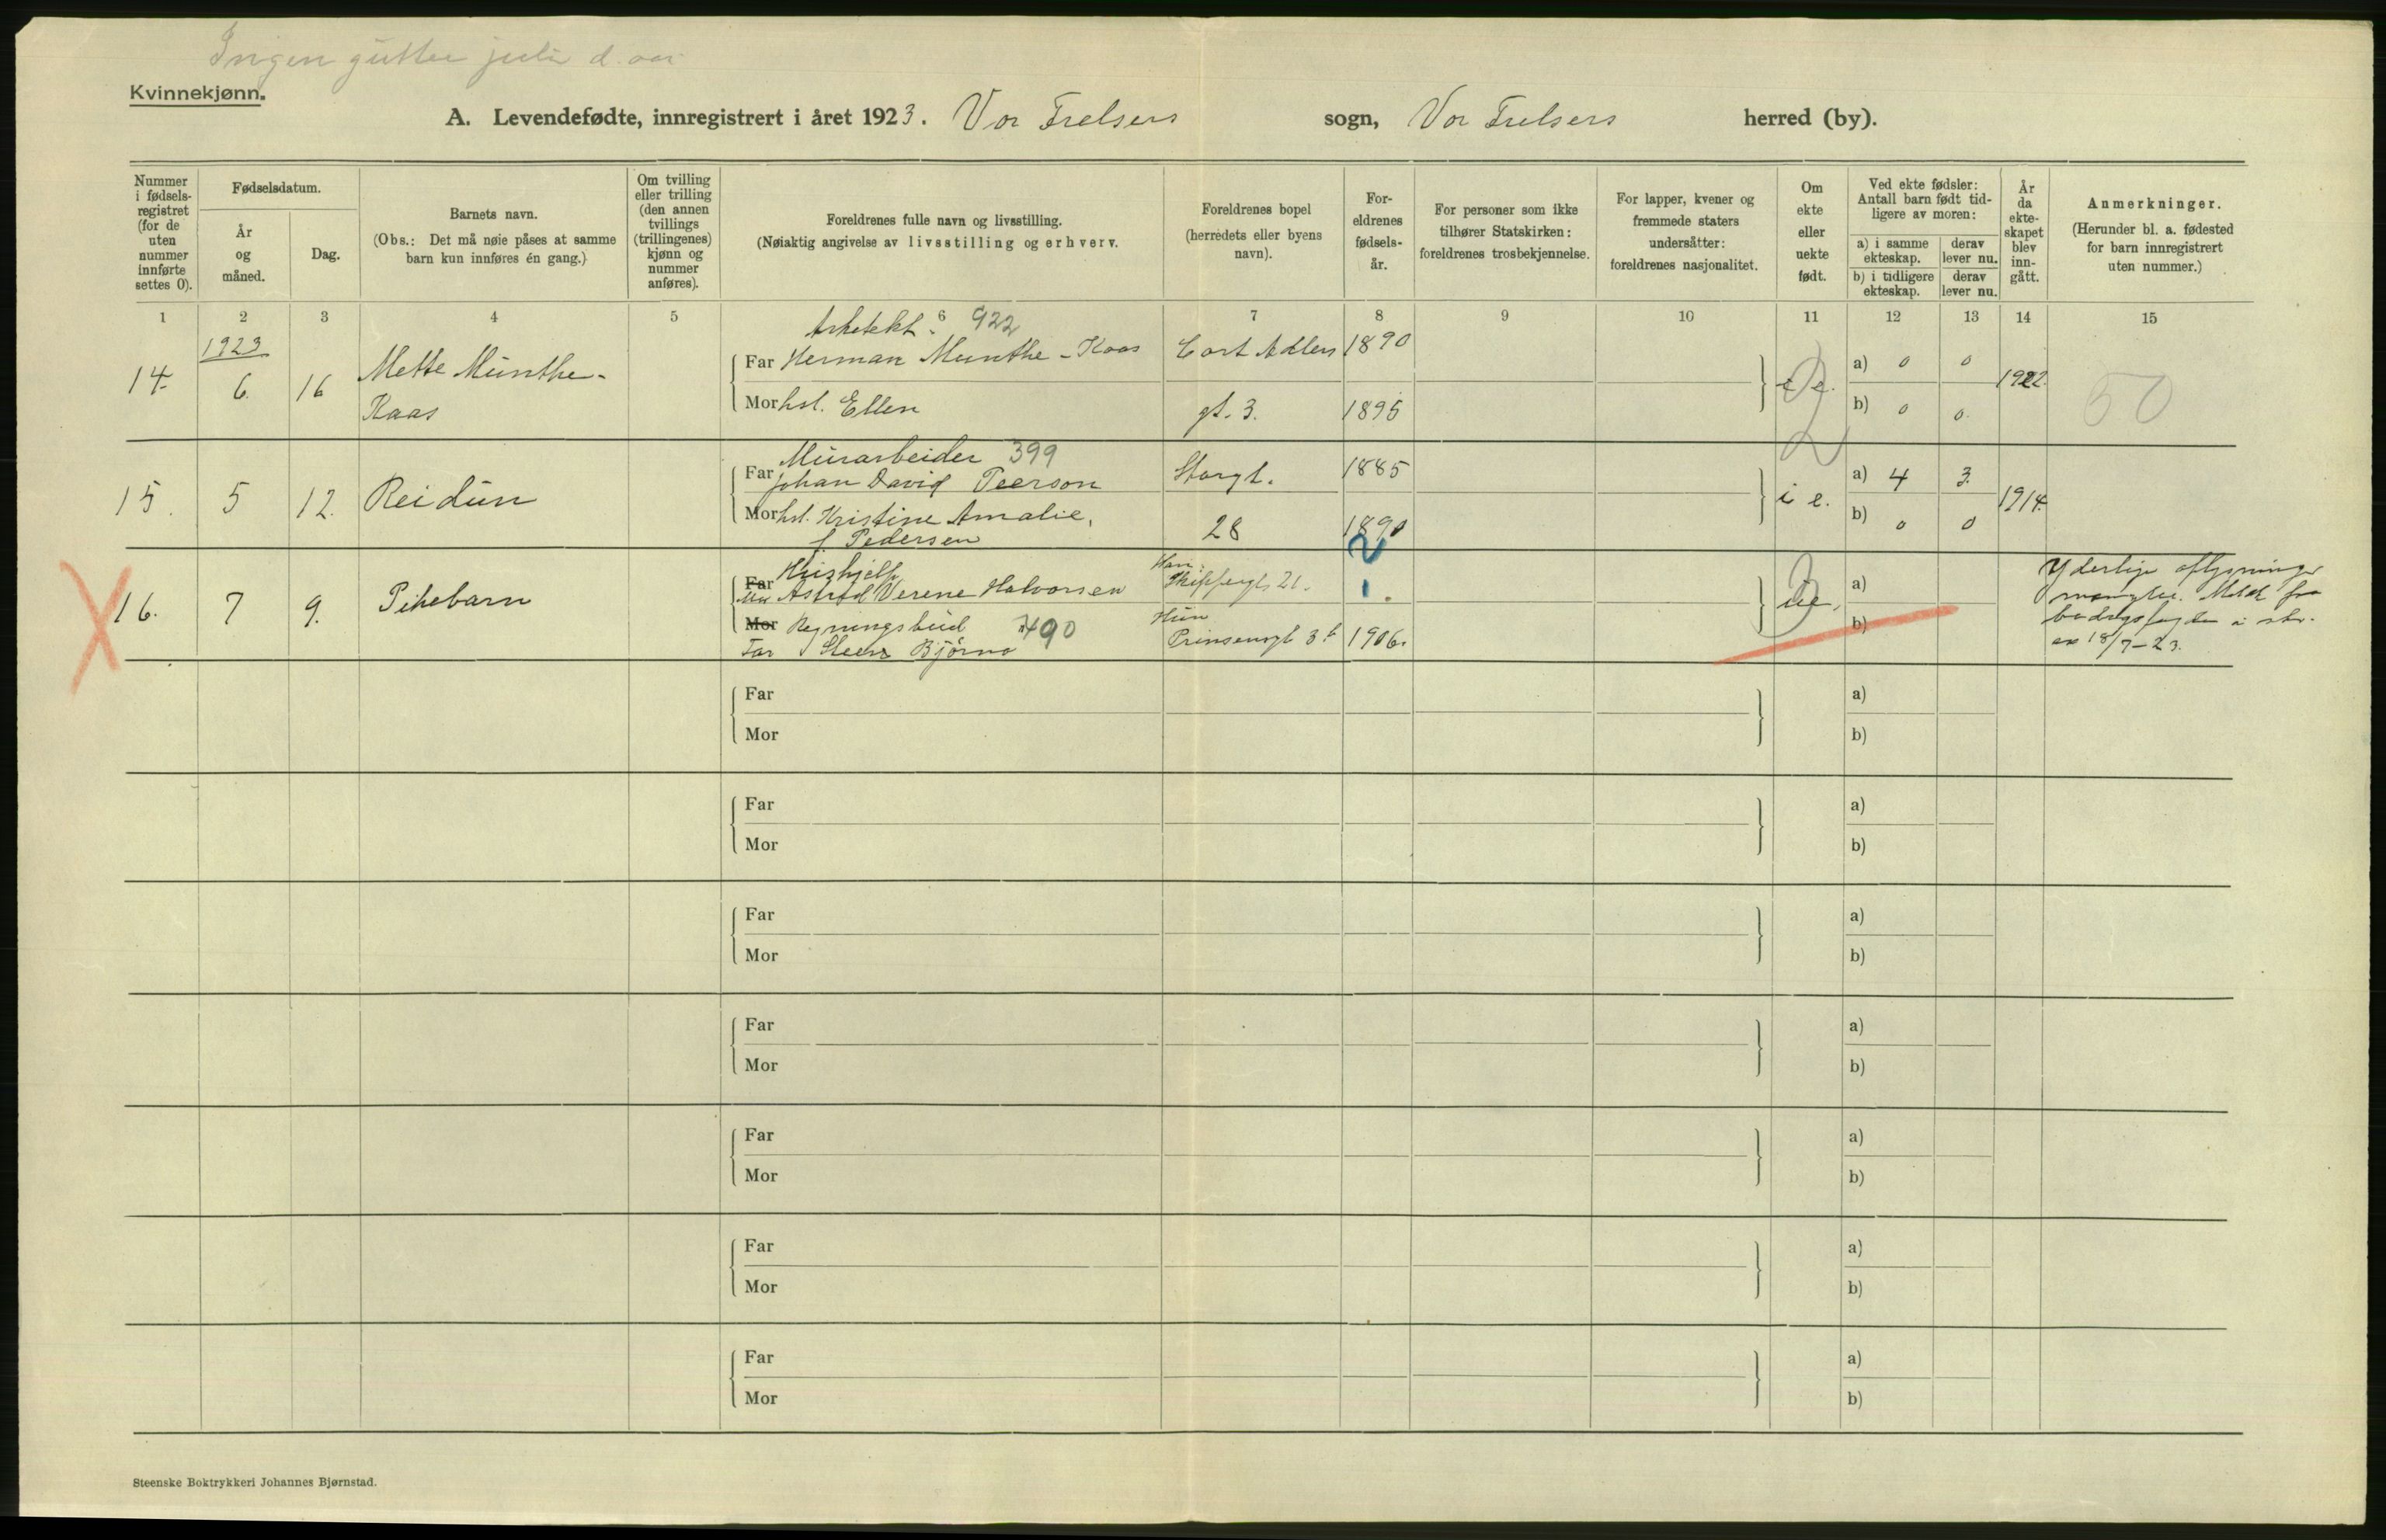 Ingen gutter juli d. aar
Kvinnekjønn.
A. Levendefødte, innregistrert i året 1923. Vor Frelsers sogn, Vor Frelsers herred (by).
Nummer i fødsels-registret (for de uten nummer innførte settes 0).
Fødselsdatum.
År og måned.
Dag.
Barnets navn.
(Obs.: Det må nøie påses at samme barn kun innføres én gang.)
Om tvilling eller trilling (den annen tvillings (trillingenes) kjønn og nummer anføres).
Foreldrenes fulle navn og livsstilling.
(Nøiaktig angivelse av livsstilling og erhverv.
Foreldrenes bopel (herredets eller byens navn).
For-eldrenes fødsels-år.
For personer som ikke tilhører Statskirken: foreldrenes trosbekjennelse.
For lapper, kvener og fremmede staters undersåtter: foreldrenes nasjonalitet.
Om ekte eller uekte født.
Ved ekte fødsler: Antall barn født tid-ligere av moren:
a) i samme ekteskap.
derav lever nu.
b) i tidligere ekteskap.
derav lever nu.
År da ekte-skapet blev inn-gått.
Anmerkninger.
(Herunder bl. a. fødested for barn innregistrert uten nummer.)
1 2 3 4 5 6 7 8 9 10 11 12 13 14 15
1923
14. 6. 16 Mette Munthe-
Kaas
Arkitekt. 922
Far Herman Munthe-Kaas Cort Adlers 1890
Mor hst. Ellen gt. 3. 1895
i e. a) 0 0 1922.
b) 0 0.
50
15. 5 12. Reidun
Murarbeider 399
Far Johan David Peerson Storgt. 1885
Mor hst. Kristine Amalie, 28 1890
f. Pedersen
i e. a) 4 3. 1914.
b) 0 0
2
16. 7 9. Pikebarn
Hushjelp
Far
Mor Astrid Verene Halvorsen
Han: Skippergt. 21. 1.
Mor Regningsbud 490
Far Steen Bjørno
Hun Prinsensgt 3 b 1906.
ue. a)
b)
Yderlige oplysninger
mangler. Meldt fra
bidragsfogden i skr.
av 18/7-23.
Far
Mor
a)
b)
Far
Mor
a)
b)
Far
Mor
a)
b)
Far
Mor
a)
b)
Far
Mor
a)
b)
Far
Mor
a)
b)
Far
Mor
a)
b)
Steenske Boktrykkeri Johannes Bjørnstad.